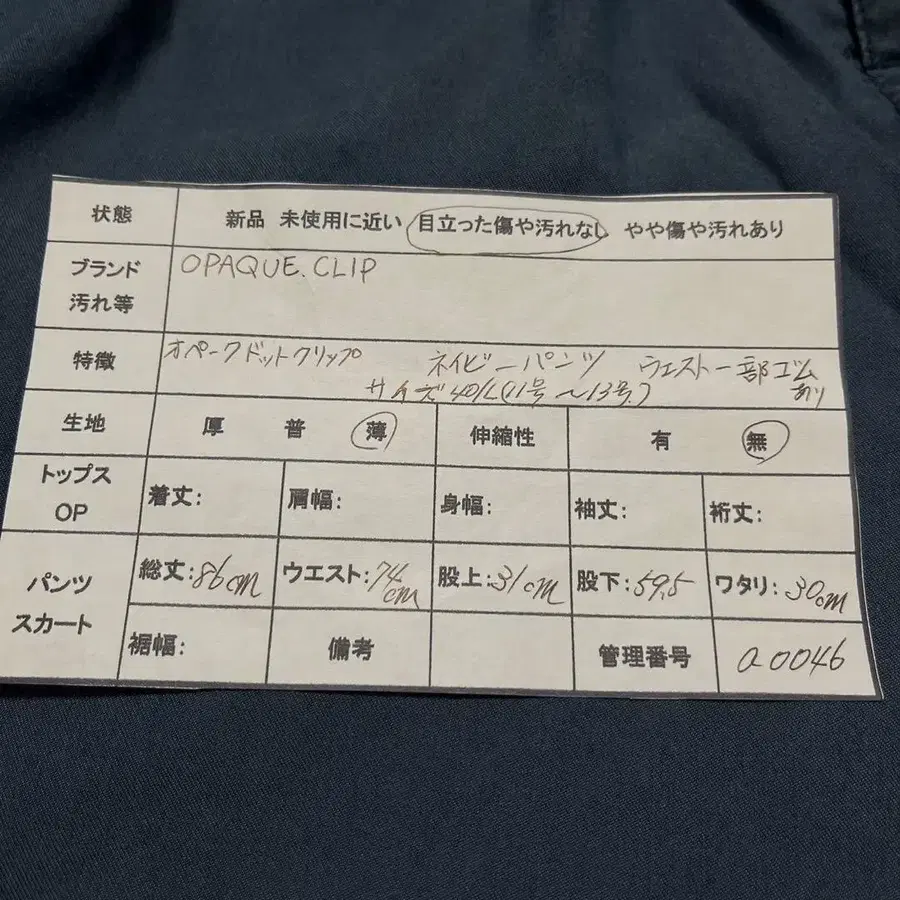 状態 新品 未使用に近い 目立った傷や汚れなし やや傷や汚れあり
ブランド OPAQUE.CLIP
汚れ等
特徴 オペークドットクリップ ネイビーパンツ ウエスト一部ゴム
サイズ40/L(11号〜13号) あり
生地 厚 普 薄 伸縮性 有 無
トップス
OP 着丈: 肩幅: 身幅: 袖丈: 裄丈:
パンツ
スカート 総丈:86cm ウエスト:74cm 股上:31cm 股下:59.5 ワタリ:30cm
裾幅: 備考 管理番号 a0046